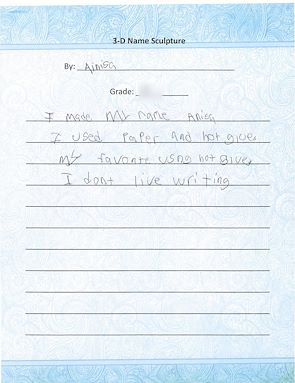 3-D Name Sculpture
By: Anisa
Grade:
I made My name Anisa
I used Paper and hot glue.
my favorite using hot glue.
I dont live writing